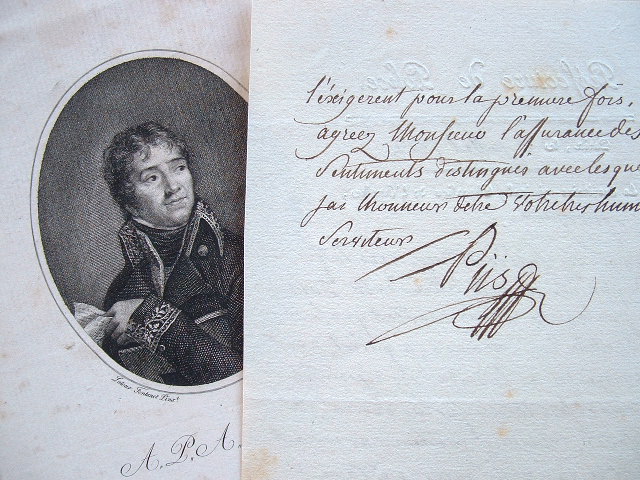 l'éxigerent pour la premiere fois,
agreez Monsieur l'assurance des
Sentiments distingués avec les que
jai Lhonneur detre votre tres hum
Serviteur
Piis
Pinx.t
A.P.A.